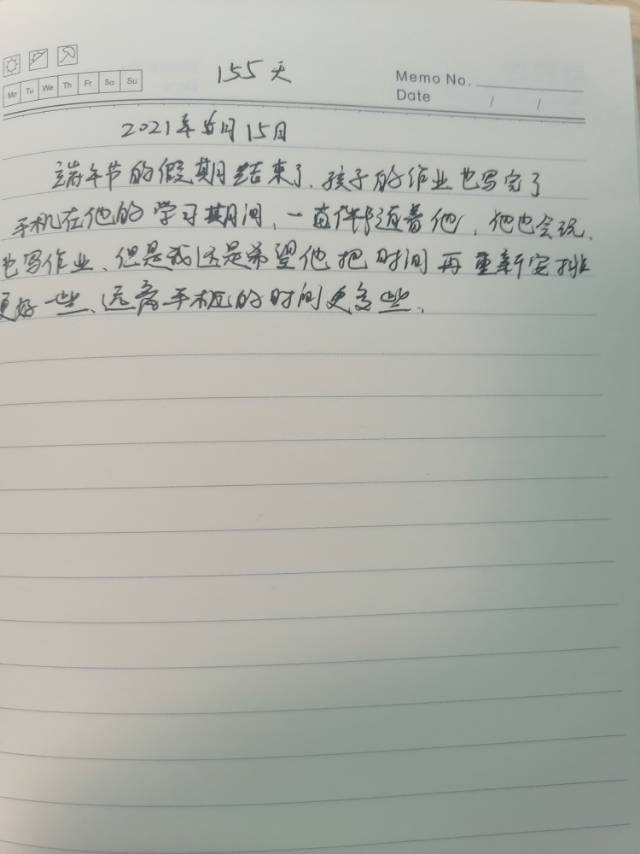 155天
Memo No.
Mo Tu We Th Fr Sa Su
Date / /
2021年6月15日
端午节的假期结束了.孩子的作业也写完了
手机在他的学习期间、一直伴随着他,他也会玩.
也写作业、但是我还是希望他把时间再重新安排
更好一些、远离手机的时间更多些.